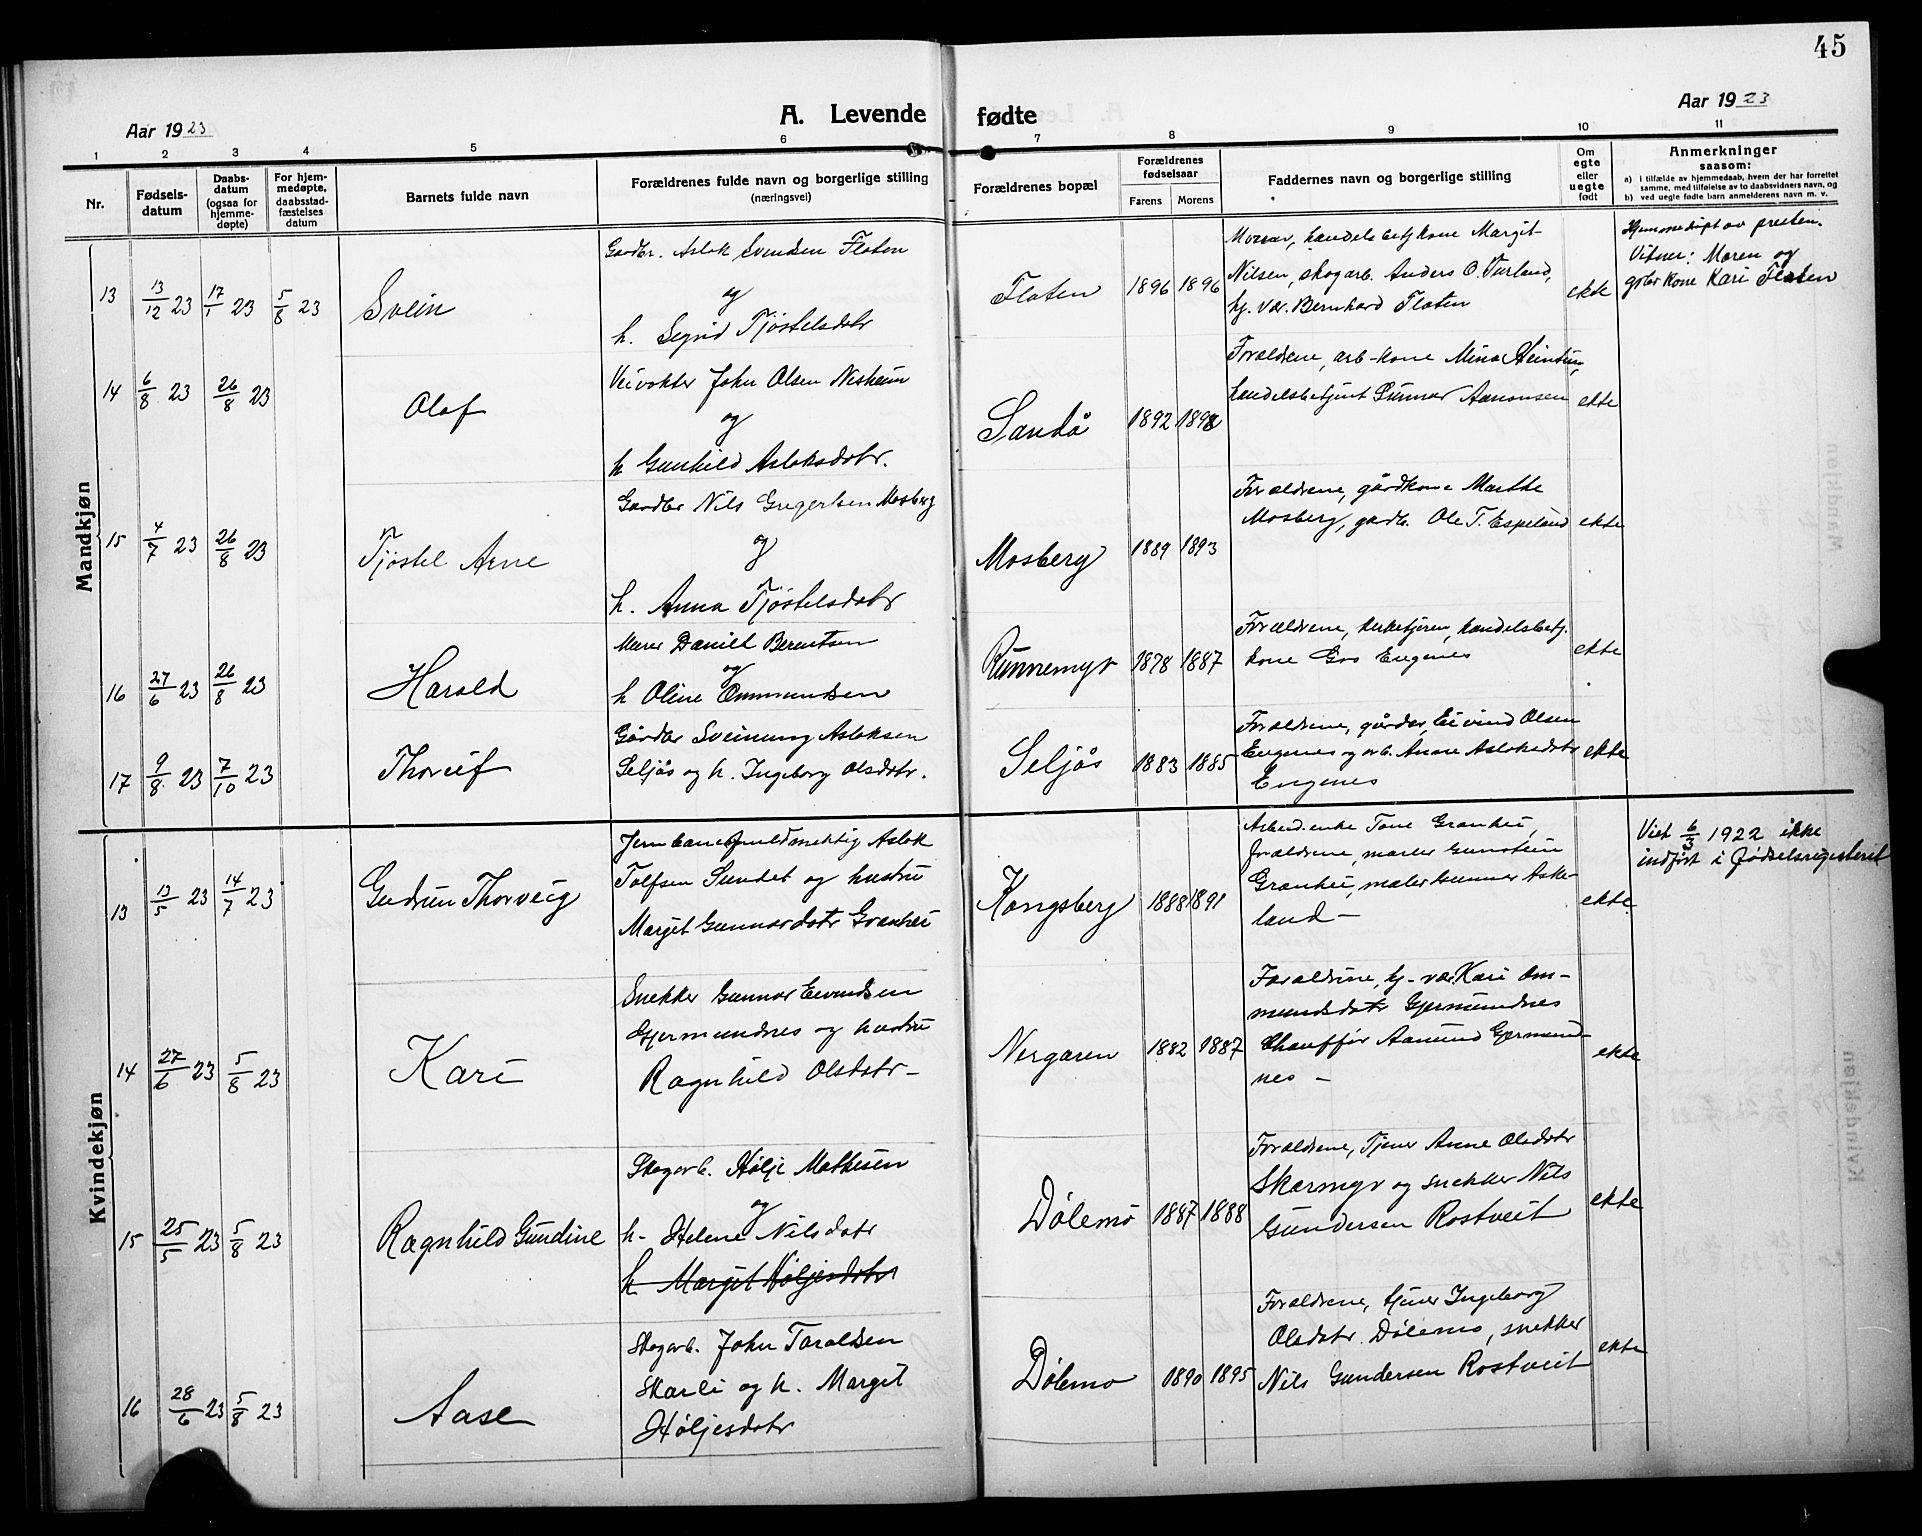 45
Aar 1923
A. Levende
fødte
Aar 1923
1 2 3 4 5 6 7 8 9 10 11
Nr.
Fødselsdatum
Daabsdatum (ogsaa for hjemmedøpte)
For hjemmedøpte, daabsstadfæstelses datum
Barnets fulde navn
Forældrenes fulde navn og borgerlige stilling
(næringsvei)
Forældrenes bopæl
Forældrenes fødselsaar
Farens Morens
Faddernes navn og borgerlige stilling
Om egte eller uegte født
Anmerkninger
saasom:
a) i tilfælde av hjemmedaab, hvem der har forrettet samme, med tilføielse av to daabsvidners navn, og
b) ved uegte født barn anmelderens navn m. v.
Mandkjøn
13 13/12 23 17/1 23 5/8 23 Svein
Gardbr. Aslak Svendsen Flaten
og
h. Signe Tjøstelsdatr
Flaten 1896 1896
Moren, handelsbetj kone Margit
Nilsen, skogarb. Anders O.
hj. var. Bernhard Flaten
ekte
Hjemmedøpt av presten.
Vitner: Moren og
gbr kone Kari Flaten
14 6/8 23 26/8 23 Olaf
Veivokter John Olsen Nesheim
og
h Gunhild Aslaksdatr.
Sandå 1892 1892
Forældrene, arb-kone Mina
handelsbetjent Gunnar Aanonsen
ekte
15 4/7 23 26/8 23 Tjøstel Arne
Gardbr Nils Gregersen Mosberg
og
h. Anna Tjøstelsdatr
Mosberg 1889 1893
Forældrene, gårdkone Marthe
Mosberg, gardb. Ole T. Espeland
ekte
16 27/6 23 26/8 23 Harald
Murer Daniel Berentsen
og
h Oline Ommundsen
Runnemyr 1878 1887
Forældrene, kirketjeren, handelsbetj.
kone Gro Eugenes
ekte
17 9/8 23 7/10 23 Thorleif
Gårdbr Sveinung Aslaksen
Seljås og h. Ingeborg Olsdatr.
Seljås 1883 1885
Forældrene, gårdbr, Eivind Olsen
Engenes og arb. Anne Aslaksdatr
Engenes
ekte
Kvindekjøn
13 13/5 23 14/7 23 Gudrun Thorveig
Jernbanefuldmektig Aslak
Tolfsen Sundet og hustru
Margit Gunnarsdatr Granhei
Kongsberg 1888 1891
Arbeid.enke Tone Granhei,
forældrene, maler Gunstein
Granhei, maler Gunnar Aske-
land -
ekte.
Viet 6/3 1922 ikke
indført i fødselsregisteret
14 27/6 23 5/8 23 Kari
Snekker Gunnar Eivendsen
Gjermundnes og hustru
Ragnhild Olsdatr -
Nergaren 1882 1887
Forældrene, hj-var. Kari Om-
mundsdatr Gjermundnes
Chauffør Aamund Gjermund-
nes -
ekte
15 25/5 23 5/8 23 Ragnhild Gundine
Skogarb. Hølje Mathisen
og
h- Helene Nilsdatr
h Margit Høljesdatr
Dølemo 1887 1888
Forældrene, Tjener Anne Olsdatr
Skarmyr og snekker Nils
Gundersen Rostveit
ekte
16 28/6 23 5/8 23 Aase
Skogarb. John Taraldsen
Skarli og h. Margit
Høljesdatr
Dølemo 1890 1895
Forældrene, tjener Ingeborg
Olsdatr. Dølemo, snekker
Nils Gundersen Rostveit
ekte